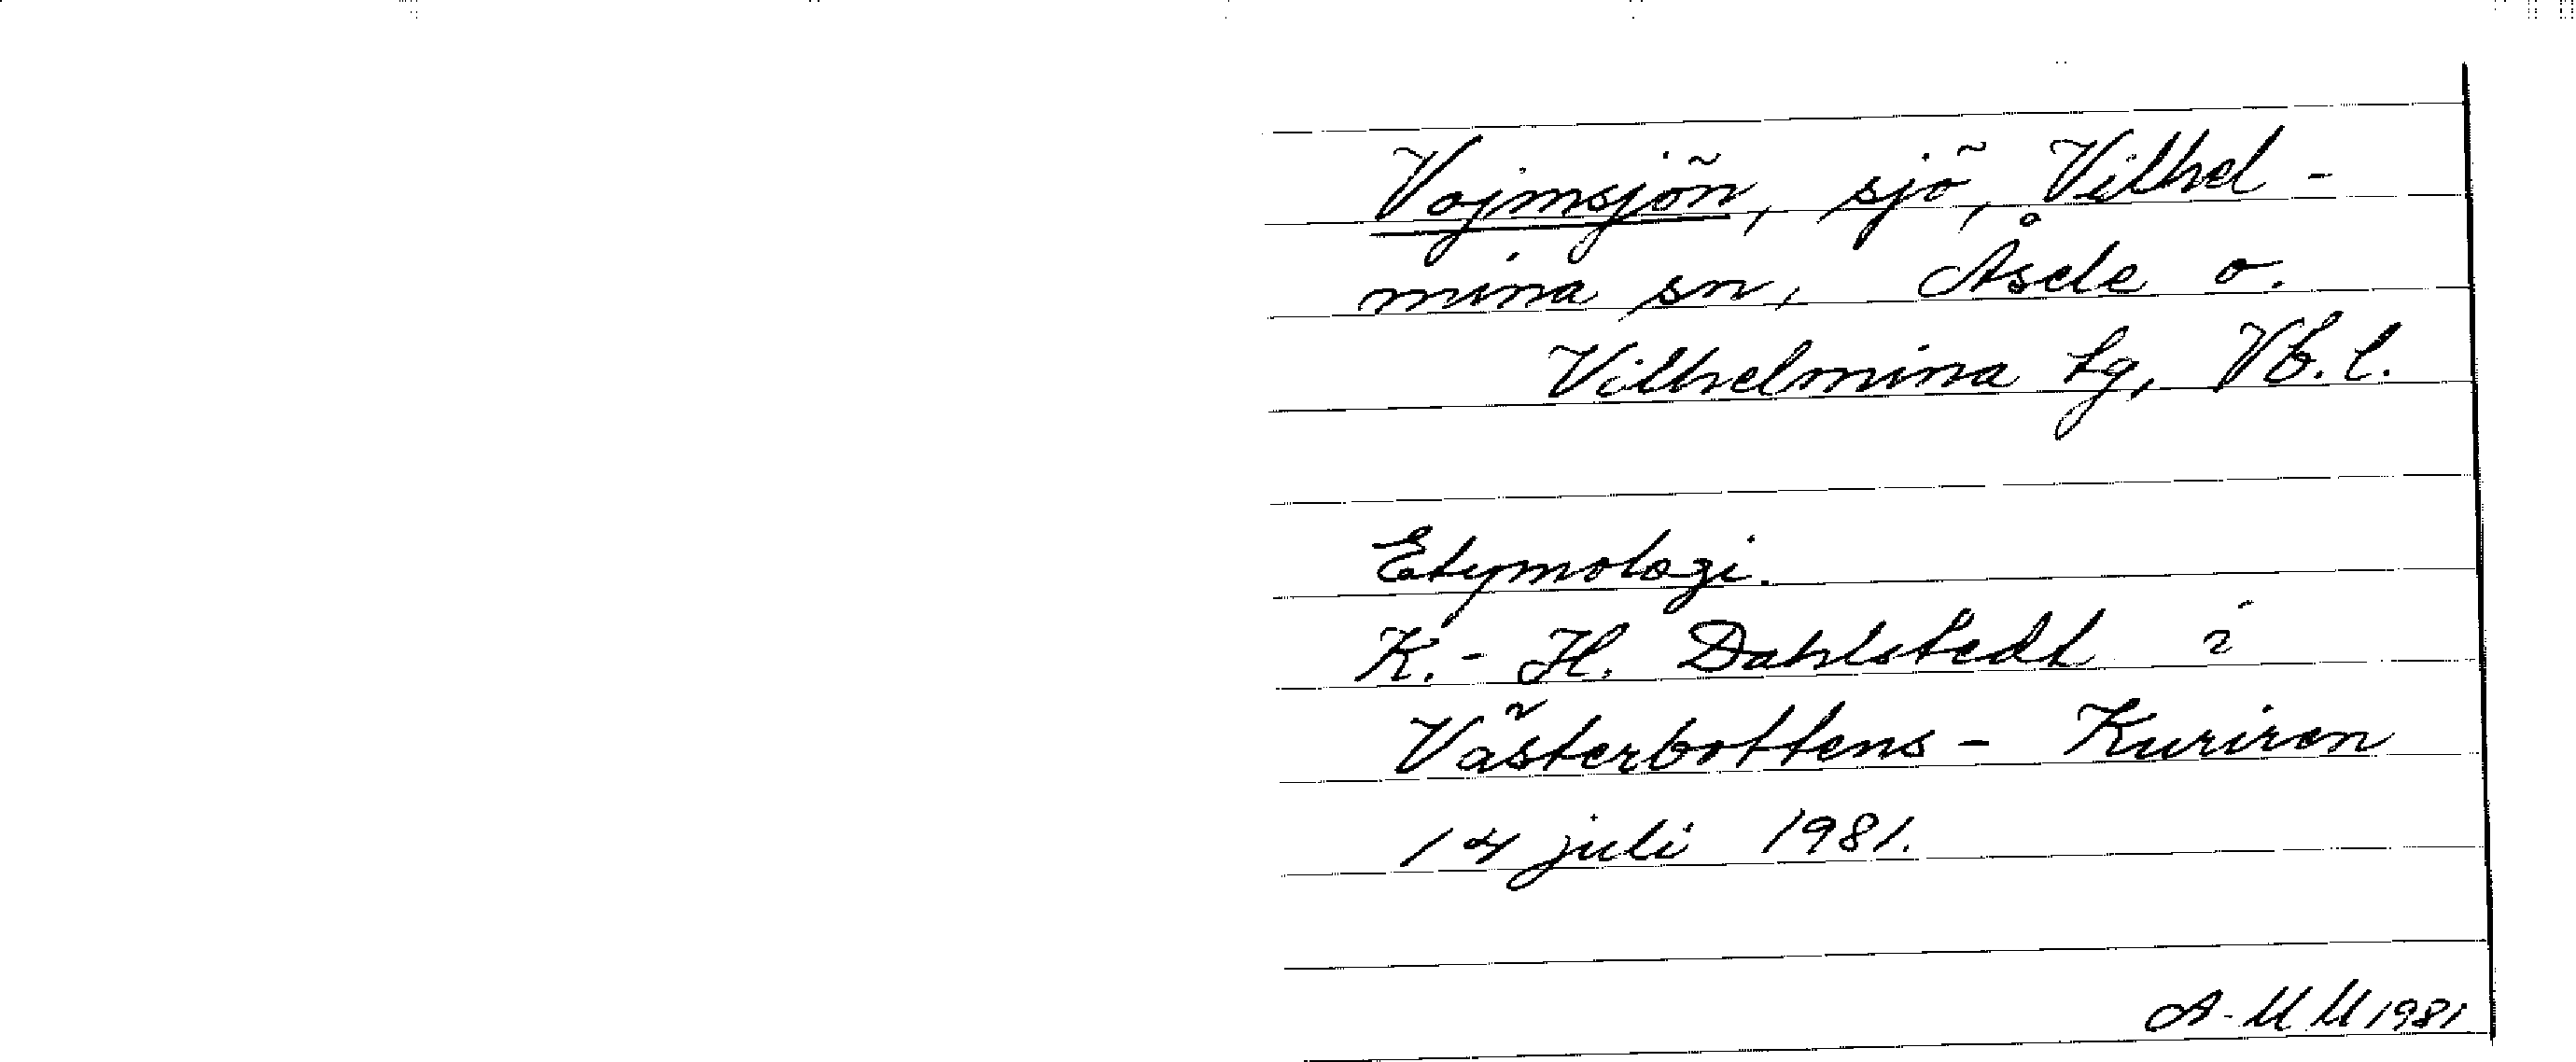 Vojmsjön, sjö, Vilhel-
mina sn, Åsele o.
Vilhelmina tg, Vb. l.
Etymologi.
K.-H. Dahlstedt i
Västerbottens-Kuriren
14 juli 1981.
A-MM 1981